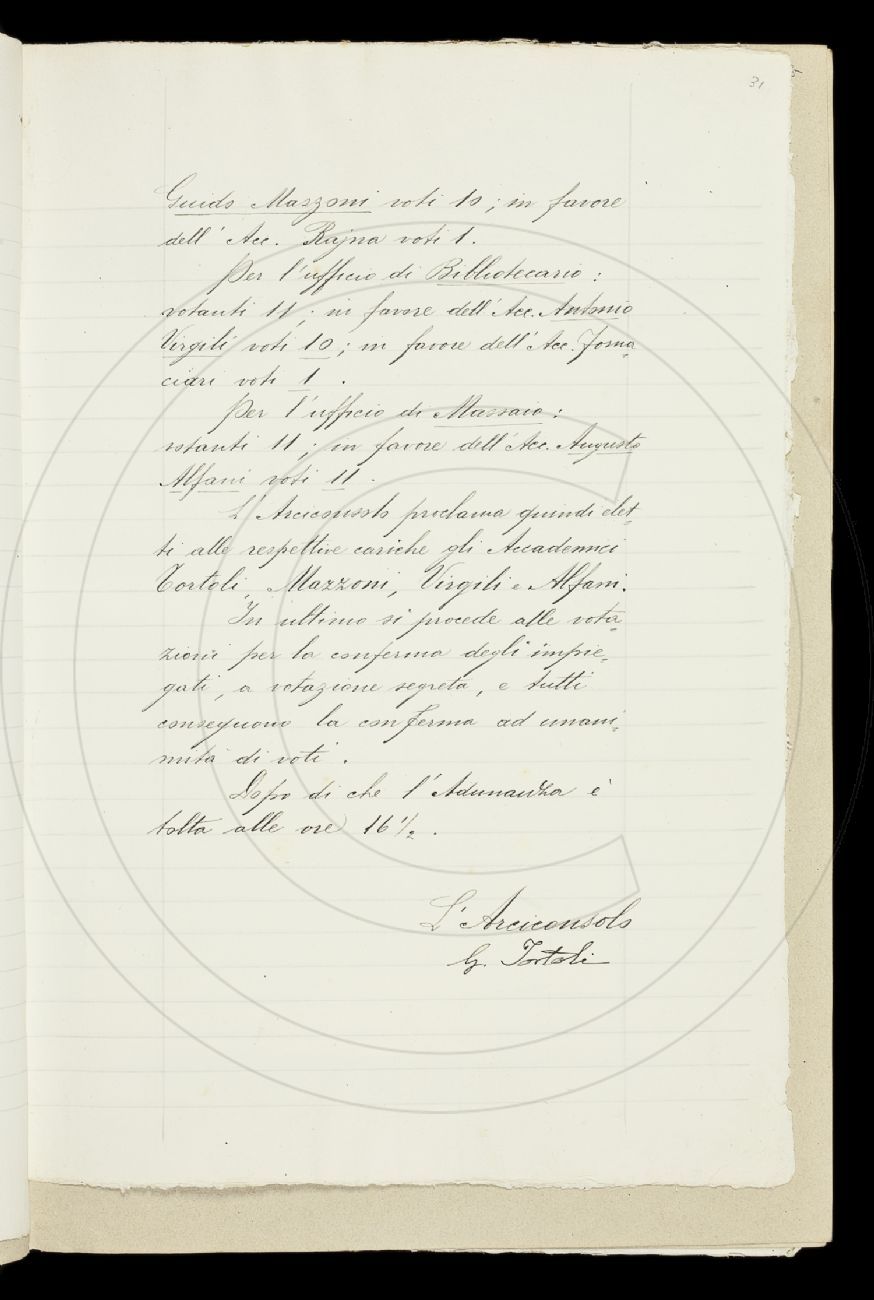 31
Guido Mazzoni voti 10; in favore
dell' Acc. Rajna voti 1.
Per l'ufficio di Bibliotecario:
votanti 11; in favore dell'Acc. Antonio
Virgili voti 10; in favore dell'Acc. Forna-
ciari voti 1.
Per l'ufficio di Massaio:
votanti 11; in favore dell'Acc. Augusto
Alfani voti 11.
L'Arciconsolo proclama quindi elet-
ti alle respettive cariche gli Accademici
Tortoli, Mazzoni, Virgili e Alfani.
In ultimo si procede alle vota-
zioni per la conferma degli impie-
gati, a votazione segreta, e tutti
conseguono la conferma ad unani-
mità di voti.
Dopo di che l'Adunanza è
tolta alle ore 16 ½.
L'Arciconsolo
G. Tortoli